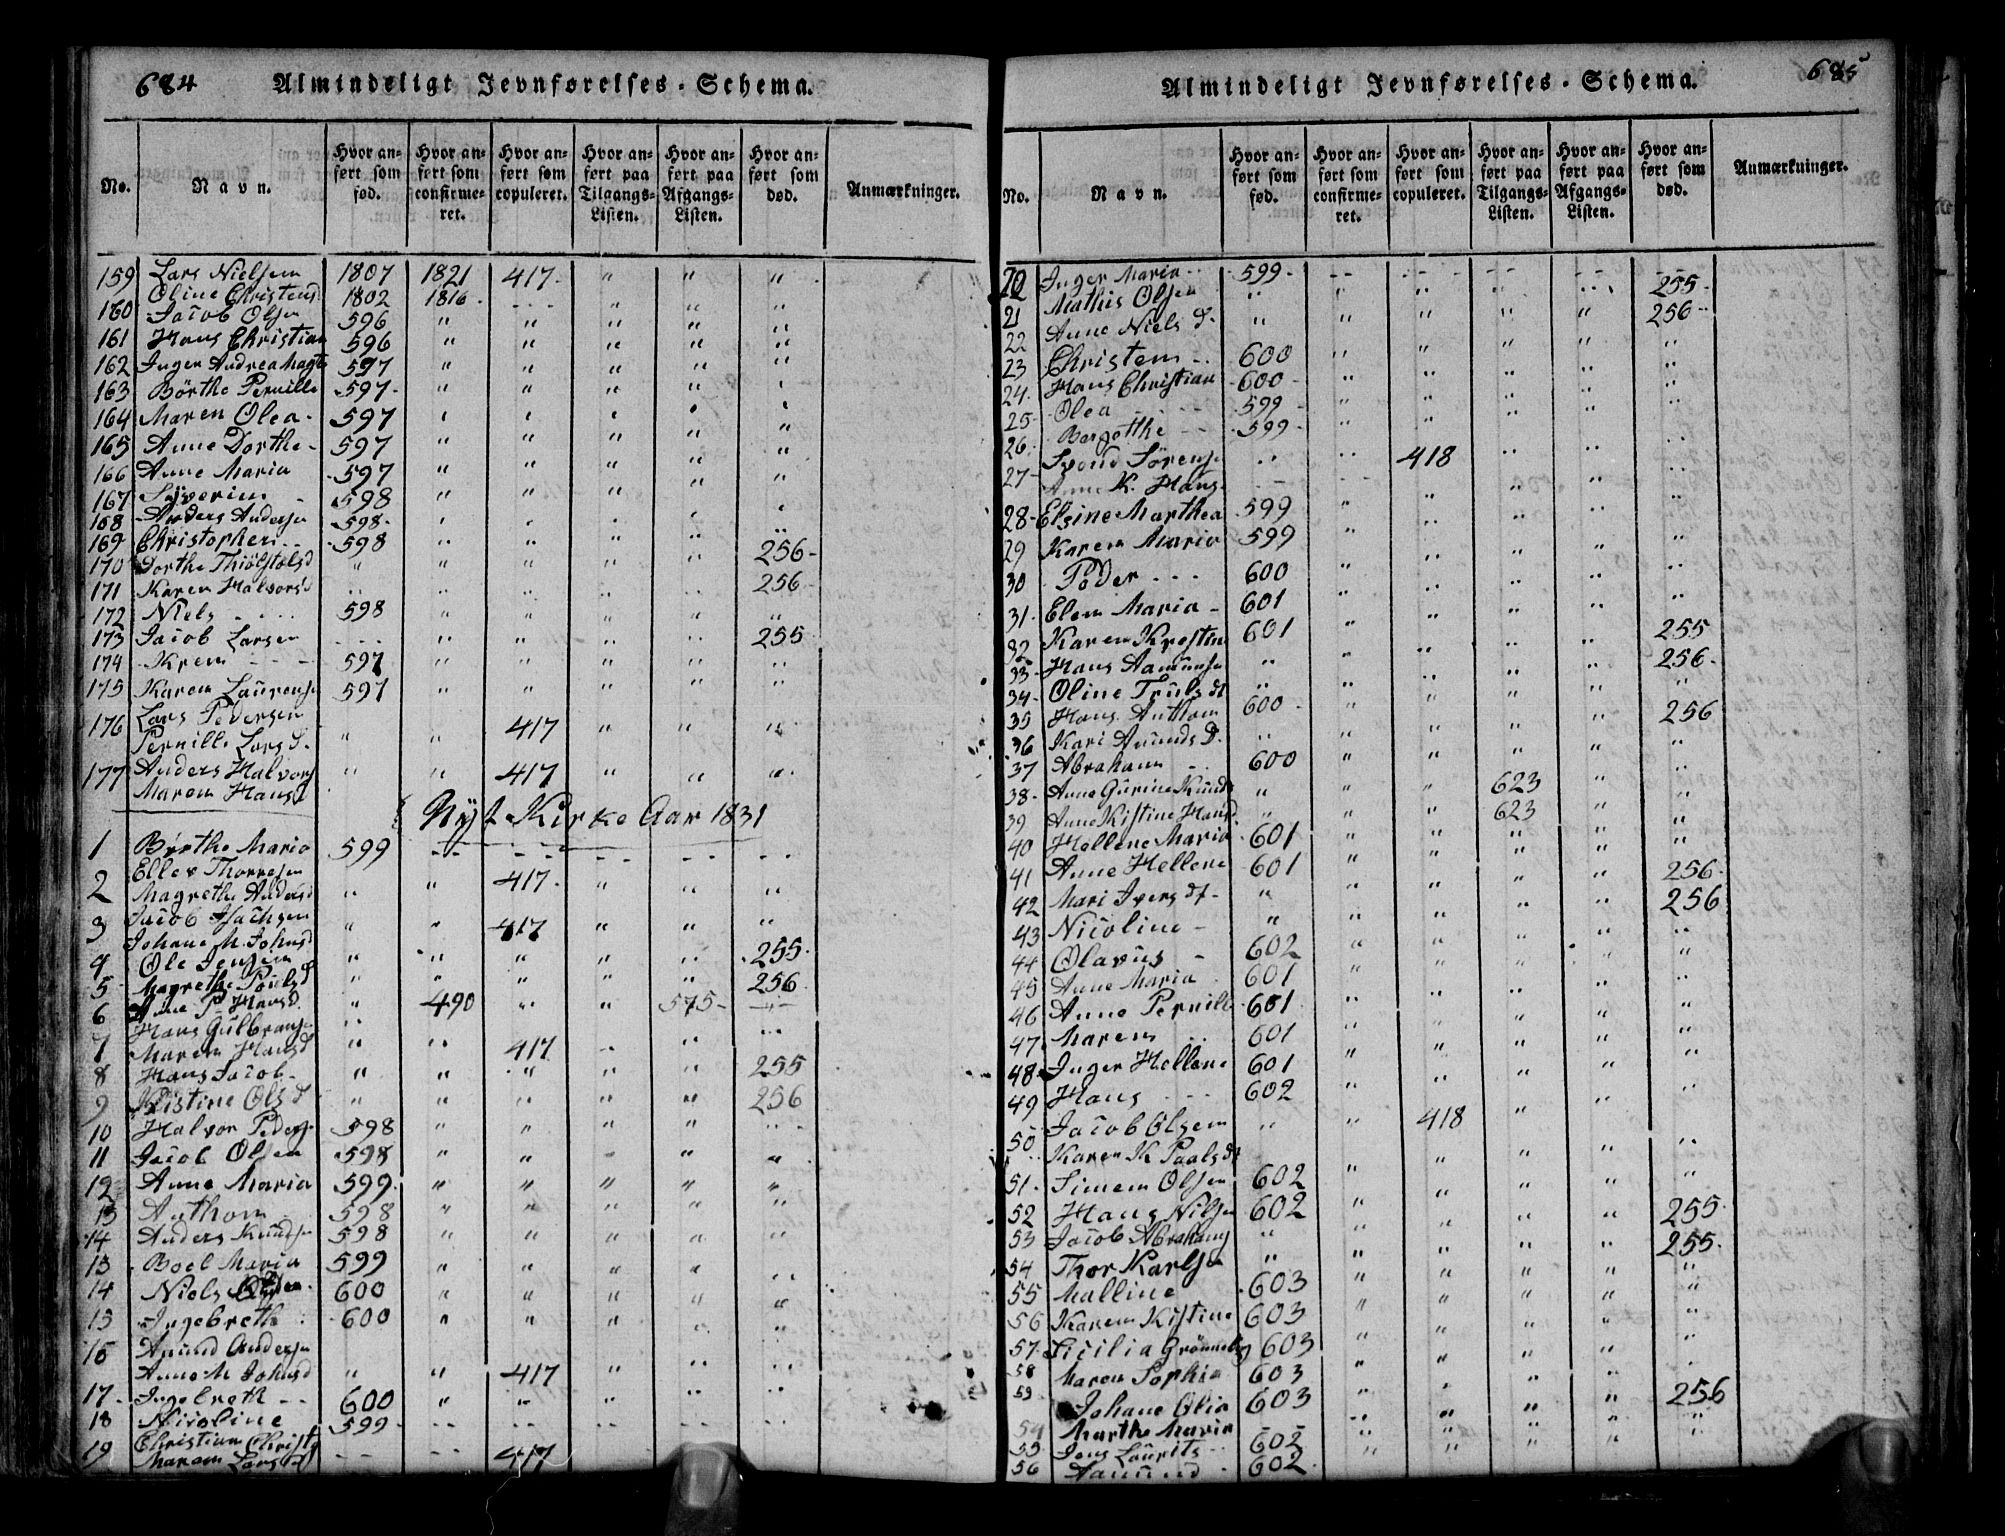 684 Almindeligt Jevnførelses-Schema.
No. Navn. Hvor anført som fød. Hvor anført som confirmeret. Hvor anført som copuleret. Hvor anført paa Tilgangs-Listen. Hvor anført paa Afgangs-Listen. Hvor anført som død. Anmærkninger.
159 Lars Nielsen 1807 1821 417 " " "
Oline Christensd 1802 1816
160 Jacob Olsen 596 " " " " "
161 Hans Christian 596 " " " " "
162 Inger Andrea Magte 597 " " " " "
163 Börthe Pernille 597 " " " " "
164 Maren Olea 597 " " " " "
165 Anne Dorthe 597 " " " " "
166 Anne Maria 597 " " " " "
167 Syverin 598 " " " " "
168 Anders Andersen 598 " " " " "
169 Christopher 598 " " " " "
170 Dorthe Thiölstølsd " " " " " 256
171 Karen Halvorsd " " " " " 256
172 Niels 598 " " " " "
173 Jacob Larsen " " " " 255
174 Kren 597 " " " " "
175 Karen Laurense 597 " " " " "
176 Lars Pedersen
Pernille Larsd. " " 417 " " "
177 Anders Halvors " " 417 " " "
Maren Hansd
Nyt Kirke Aar 1831
1 Børthe Maria 599
Ellev Thorresen
2 Magrethe Andersd " " 417 " " "
3 Jacob Isachsen " " 417 " " "
Johane M. Johnsd
4 Ole Jensen " " " " " 255
5 Magrethe Poulsd " " " " " 256
6 Anne P. Hansd. " 490 " " 575
Hans Gulbransen
7 Maren Hansd " " 417 " " "
8 Hans Jacob " " " " " 255
9 Kistine Olsd " " " " " 256
10 Halvor Peders 598 " " " " "
11 Jacob Olsen 598 " " " " "
12 Anne Maria 599 " " " " "
13 Anthon 598 " " " " "
14 Anders Knudsen 598 " " " " "
13 Boel Maria 599 " " " " "
14 Niels 600 " " " " "
15 Ingebreth 600 " " " " "
16 Amund Andersen
Anne M Johnsd " " 417 " " "
17 Ingebreth 600 " " " " "
18 Nicoline 599
Christian Christs
19 Maren Larsd 417
685 Almindeligt Jevnførelses-Schema.
No. Navn. Hvor anført som fød. Hvor anført som confirmeret. Hvor anført som copuleret. Hvor anført paa Tilgangs-Listen. Hvor anført paa Afgangs-Listen. Hvor anført som død. Anmærkninger.
20 Inger Maria 599
21 Mathis Olsen " " " " " 255
22 Anne Niels d. " " " " " 256
23 Christen 600 " " " " "
24 Hans Christian 600 " " " " "
25 Olea 599 " " " " "
26 Bergotthe 599 " " " " "
27 Svend Sörensen " " 418 " " "
Anne K. Hans
28 Elsine Marthea 599 " " " " "
29 Karen Maria 599 " " " " "
30 Peder 600 " " " " "
31 Elen Maria 601 " " " " "
32 Karen Krestine 601 " " " " "
33 Hans Aamundsen " " " " " 255
34 Oline Truls dt " " " " " 256
35 Hans Anthon 600 " " " " "
36 Kari Amunds D. " " " " " 256
37 Abraham 600 " " " " "
38 Anne Gurine Knuds " " " 623 " "
39 Anne Kistine Hansd " " " 623 " "
40 Hellene Maria 601 " " " " "
41 Anne Hellene 601 " " " " "
42 Mari Ivers dt " " " " " 256
43 Nicoline " " " " " 256
44 Olavus 602 " " " " "
45 Anne Maria 601 " " " " "
46 Anne Pernille 601 " " " " "
47 Maren 601 " " " " "
48 Inger Hellene 601 " " " " "
49 Hans 602 " " " " "
50 Jacob Olsen " " 418 " " "
Karen K Paals dt
51 Simen Olsen 602 " " " " "
52 Hans Nilsen 602 " " " " "
53 Jacob Abrahams " " " " " 255
54 Thor Karlsen " " " " " 255
55 Malline 603 " " " " "
56 Karen Kistine 603 " " " " "
57 Sicilia Grønneby 603 " " " " "
58 Maren Sophia 603 " " " " "
59 Johane Olia 603 " " " " "
54 Marthe Maria " " " " 256
55 Jens Laurits 602 " " " " "
56 Aamund 602